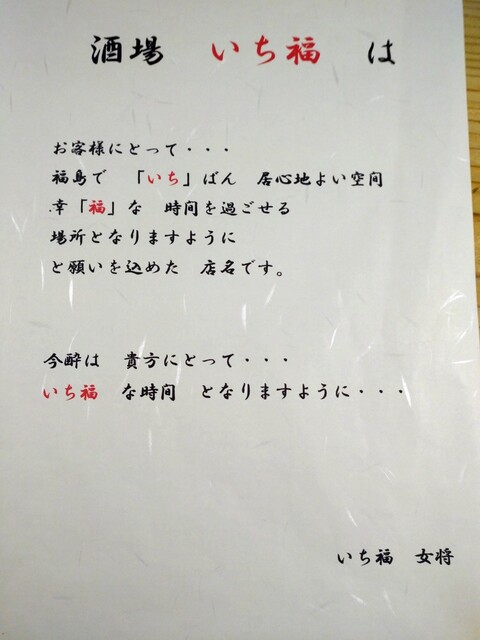 酒場　いち福　は
お客様にとって・・・
福島で　「いち」ばん　居心地よい空間
幸「福」な　時間を過ごせる
場所となりますように
と願いを込めた　店名です。
今酔は　貴方にとって・・・
いち福　な時間　となりますように・・・
いち福　女将